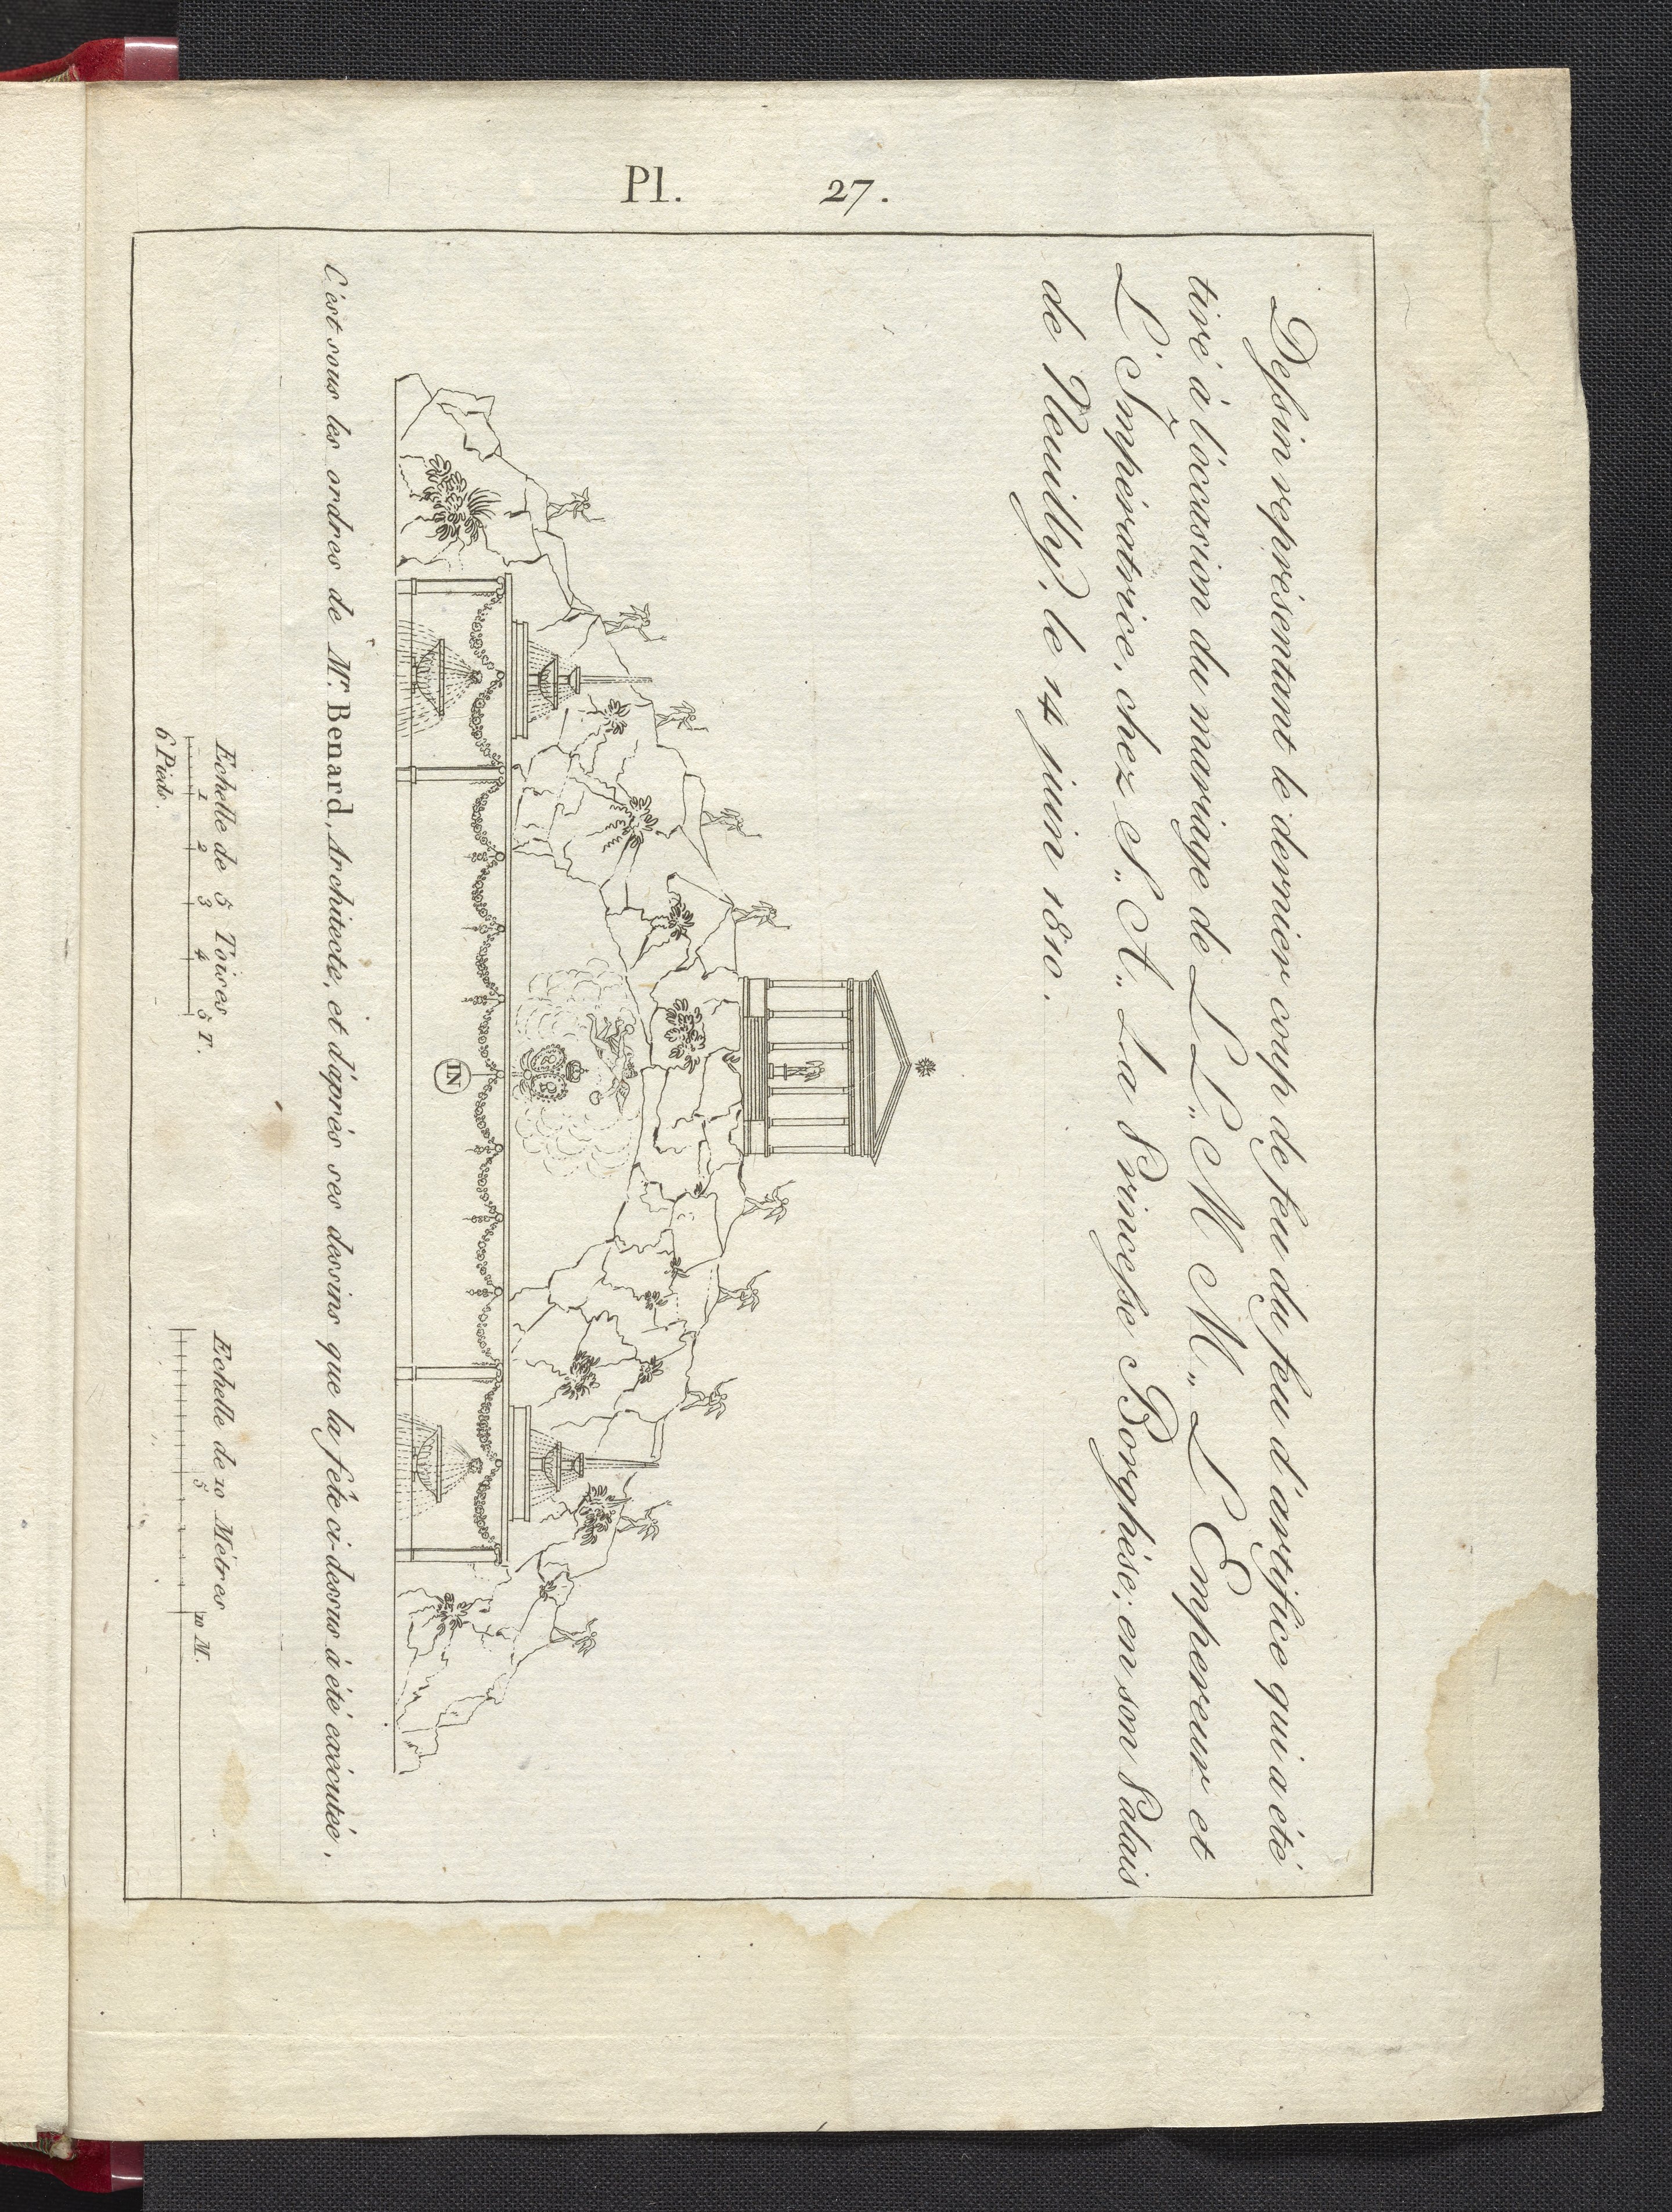 Pl. 27.
Dessin représentant le dernier coup de feu du feu d'artifice qui a été
tiré à l'occasion du mariage de L L.. M M.. L'Empereur et
L'Impératrice, chez S.. A.. La Princesse Borghèse; en son Palais
de Neuilly, le 14 juin 1810.
IN
C'est sous les ordres de Mr. Benard, Architecte, et d'après ses dessins que la fête ci-dessus a été exécutée.
Echelle de 5 Toises
1 2 3 4 5 T.
6 Pieds.
Echelle de 10 Métres
5 10 M.